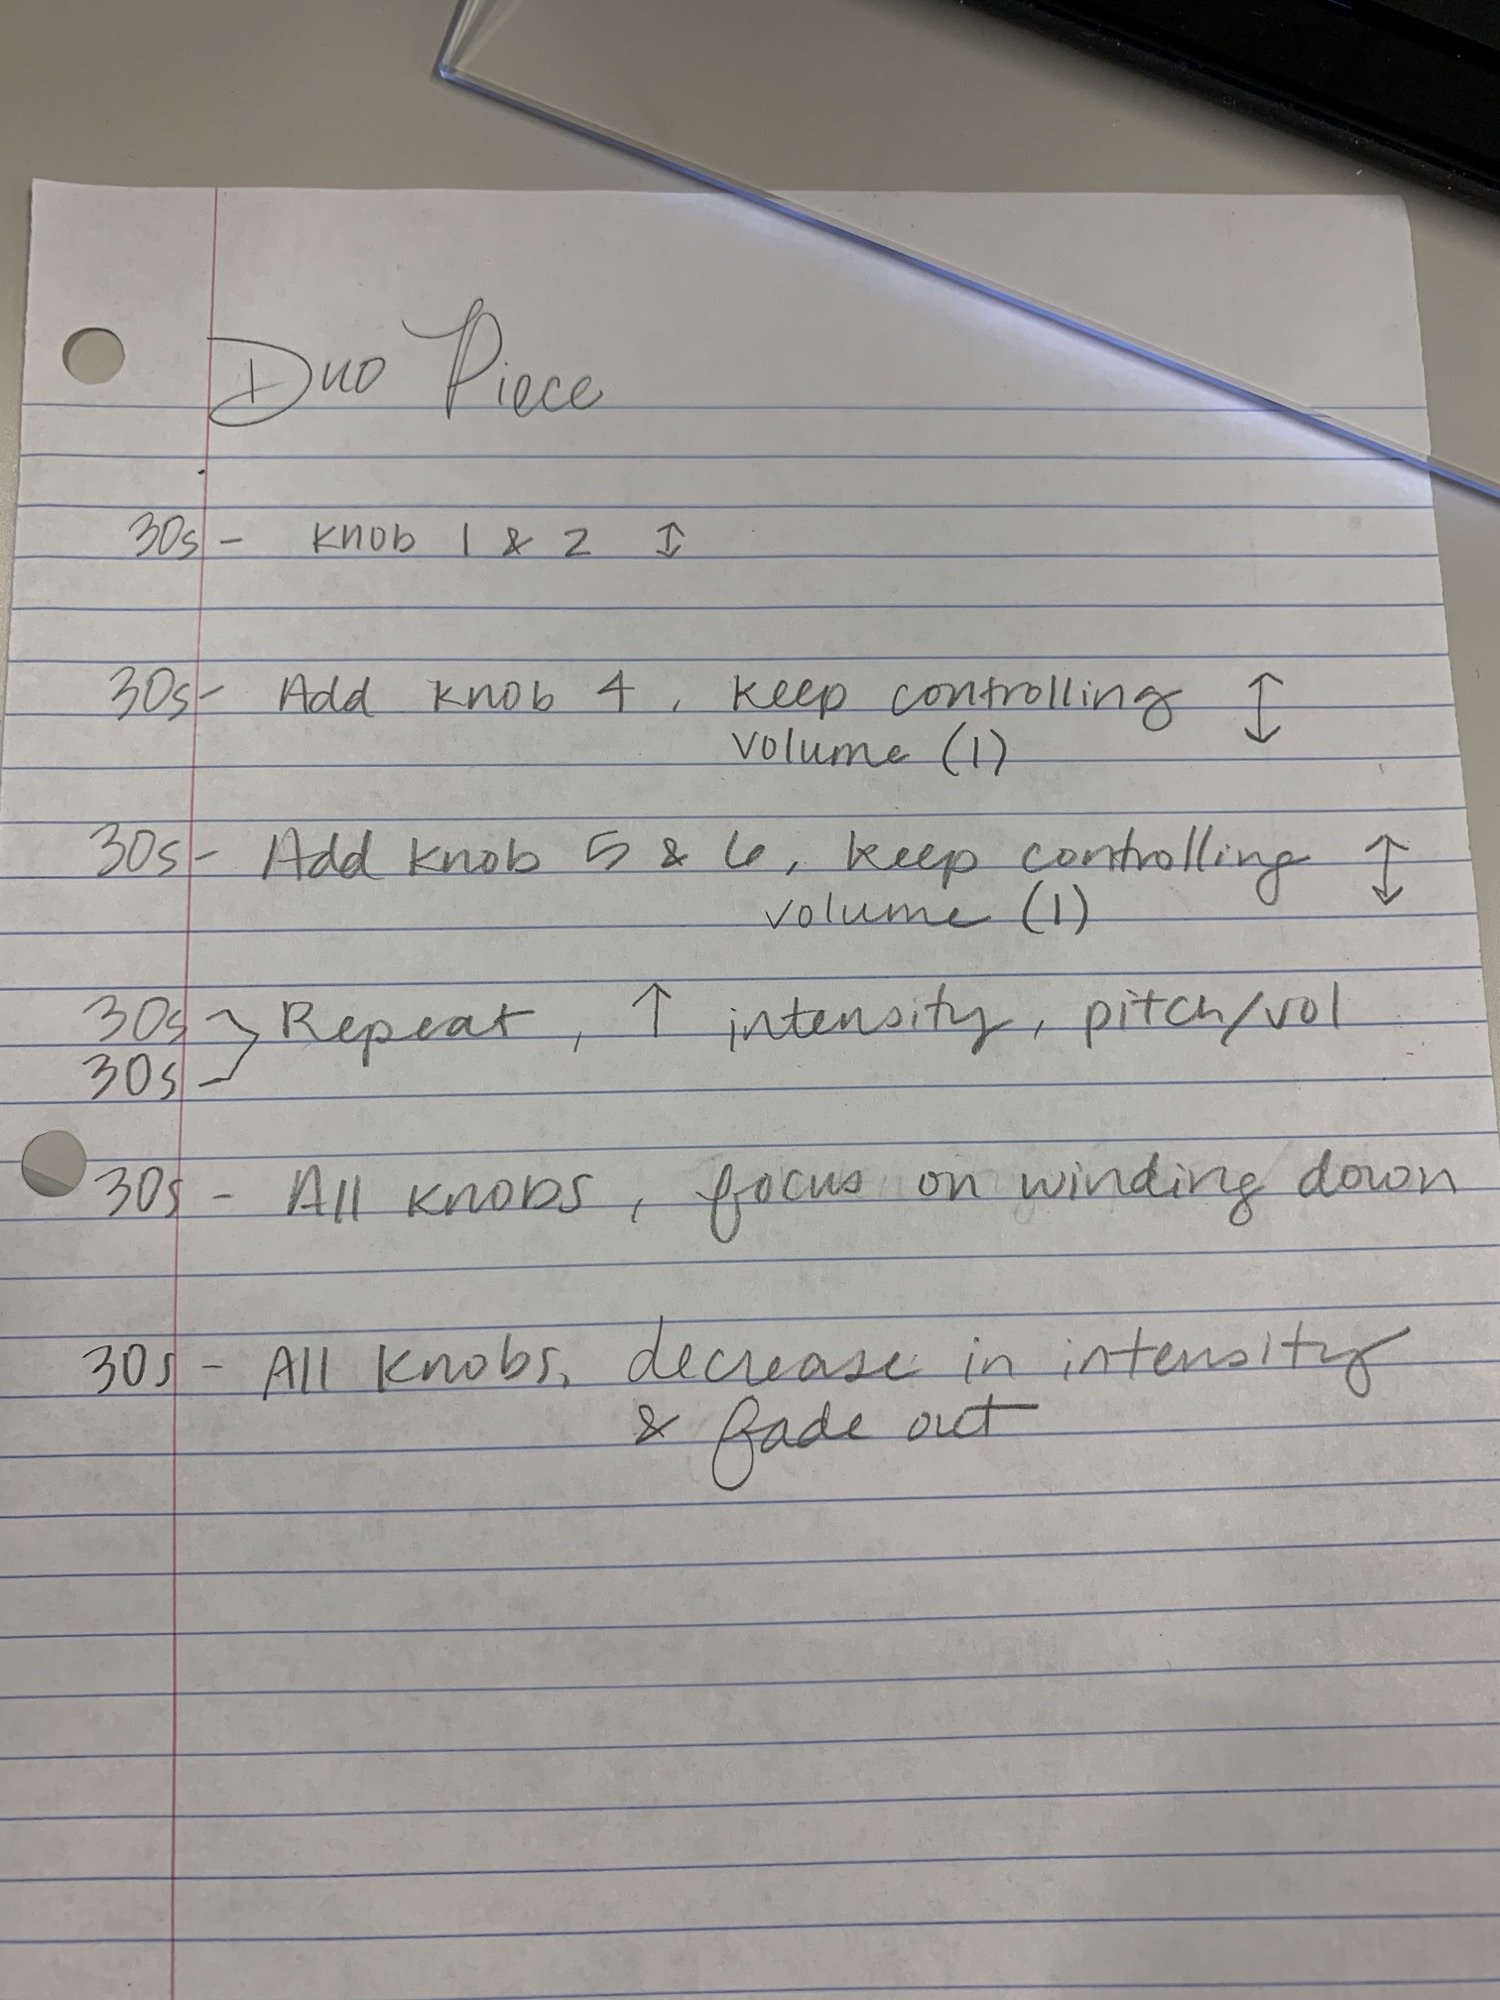 Duo Piece
30s - Knob 1 & 2 ↕
30s - Add Knob 4, keep controlling ↕
volume (1)
30s - Add Knob 5 & 6, keep controlling ↕
volume (1)
30s Repeat, ↑ intensity, pitch/vol
30s
30s - All Knobs, focus on winding down
30s - All Knobs, decrease in intensity
& fade out